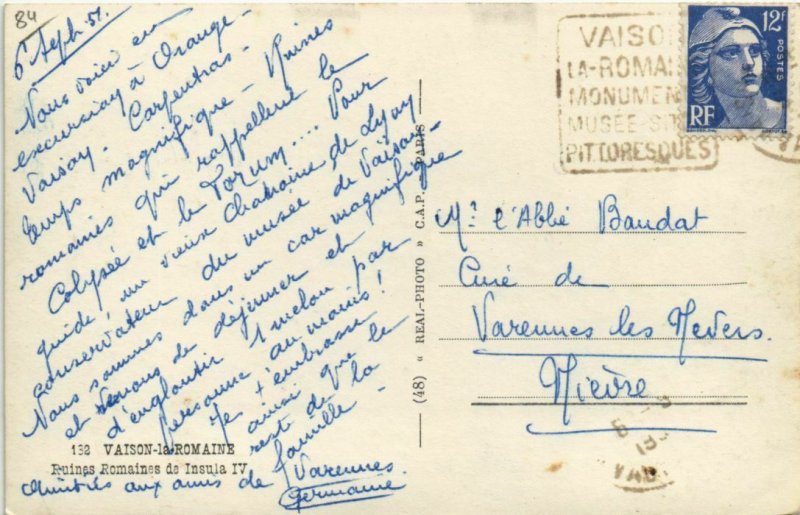 84
6 Sept. 51.
Nous voici en
excursion à Orange-
Vaison. Carpentras.
temps magnifique - Ruines
romaines qui rappellent le
Colysée et le Forum.... Pour
guide, un vieux chanoine de Lyon
conservateur du musée de Vaison.
Nous sommes dans un car magnifique
et venons de déjeuner et
d'engloutir 1 melon par
personne au moins!
Je t'embrasse
ainsi que le
reste de la
famille -
132 VAISON-la-ROMAINE
Ruines Romaines de Insula IV
Amitiés aux amis de Varennes.
Germaine
(48) « REAL-PHOTO » C.A.P. PARIS
VAISO
LA-ROMAI
MONUMEN
MUSÉE-SIT
PITTORESQUES
12F
POSTES
RF
Mr l'Abbé Baudat
Curé de
Varennes les Nevers.
Nièvre